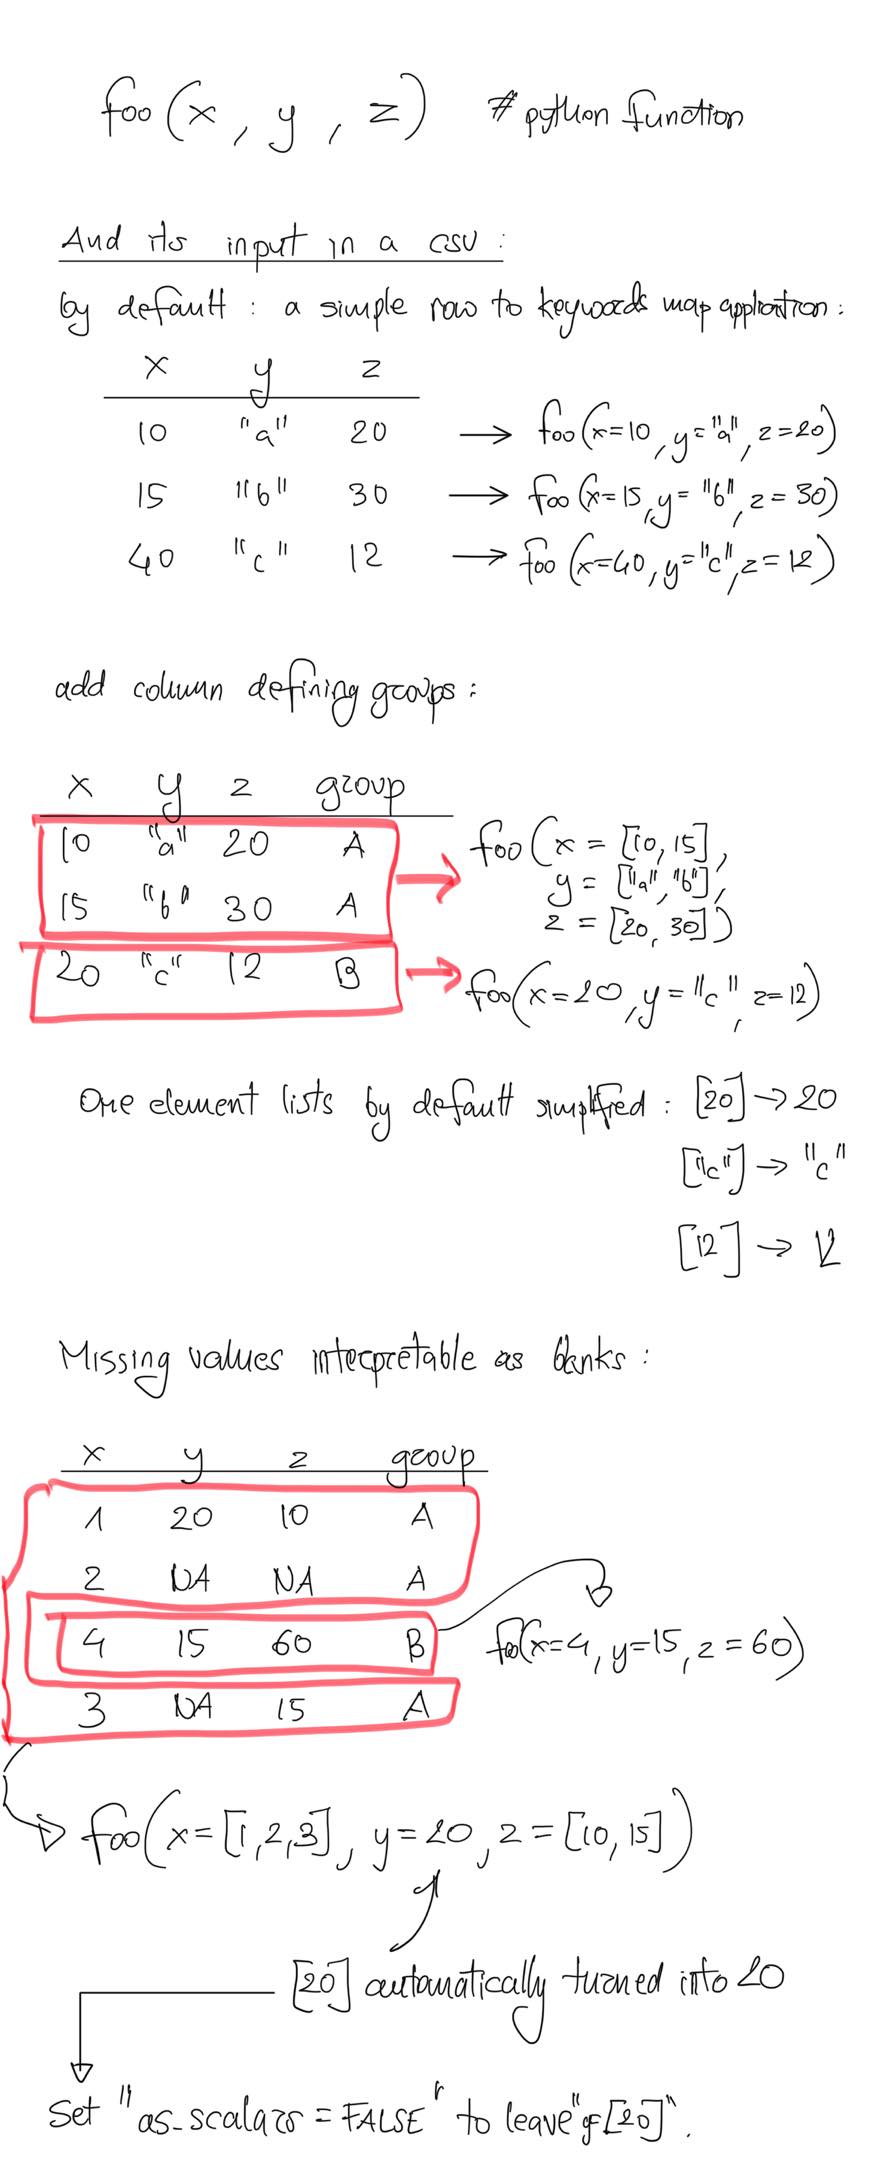 foo(x, y, z) # python function
And its input in a csv:
by default: a simple row to keywords map application:
x y z
10 "a" 20 → foo(x=10, y="a", z=20)
15 "b" 30 → foo(x=15, y="b", z=30)
40 "c" 12 → foo(x=40, y="c", z=12)
add column defining groups:
x y z group
10 "a" 20 A foo(x = [10, 15],
y = ["a", "b"],
15 "b" 30 A z = [20, 30])
20 "c" 12 B foo(x=20, y="c", z=12)
One element lists by default simplified: [20] → 20
["c"] → "c"
[12] → 12
Missing values interpretable as blanks:
x y z group
1 20 10 A
2 NA NA A
4 15 60 B foo(x=4, y=15, z=60)
3 NA 15 A
foo(x=[1,2,3], y=20, z=[10, 15])
[20] automatically turned into 20
Set "as_scalars = FALSE" to leave "y=[20]".